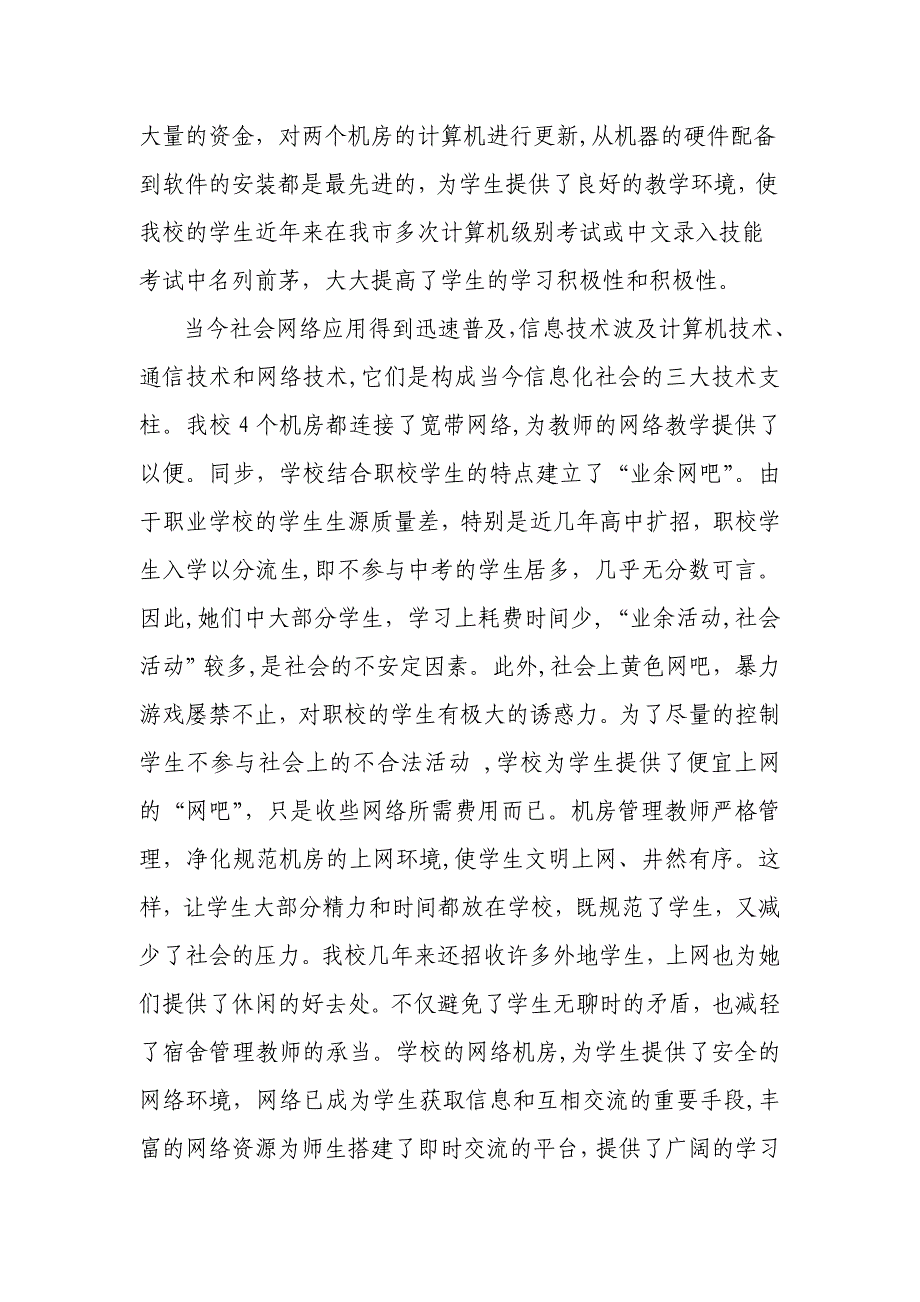 大量的资金，对两个机房的计算机进行更新,从机器的硬件配备
到软件的安装都是最先进的，为学生提供了良好的教学环境，使
我校的学生近年来在我市多次计算机级别考试或中文录入技能
考试中名列前茅，大大提高了学生的学习积极性和积极性。
当今社会网络应用得到迅速普及,信息技术波及计算机技术、
通信技术和网络技术,它们是构成当今信息化社会的三大技术支
柱。我校 4 个机房都连接了宽带网络,为教师的网络教学提供了
以便。同步，学校结合职校学生的特点建立了“业余网吧”。由
于职业学校的学生生源质量差，特别是近几年高中扩招，职校学
生入学以分流生,即不参与中考的学生居多，几乎无分数可言。
因此,她们中大部分学生，学习上耗费时间少,“业余活动,社会
活动”较多,是社会的不安定因素。此外,社会上黄色网吧，暴力
游戏屡禁不止，对职校的学生有极大的诱惑力。为了尽量的控制
学生不参与社会上的不合法活动 ,学校为学生提供了便宜上网
的“网吧”，只是收些网络所需费用而已。机房管理教师严格管
理，净化规范机房的上网环境,使学生文明上网、井然有序。这
样，让学生大部分精力和时间都放在学校，既规范了学生，又减
少了社会的压力。我校几年来还招收许多外地学生，上网也为她
们提供了休闲的好去处。不仅避免了学生无聊时的矛盾，也减轻
了宿舍管理教师的承当。学校的网络机房,为学生提供了安全的
网络环境，网络已成为学生获取信息和互相交流的重要手段,丰
富的网络资源为师生搭建了即时交流的平台，提供了广阔的学习